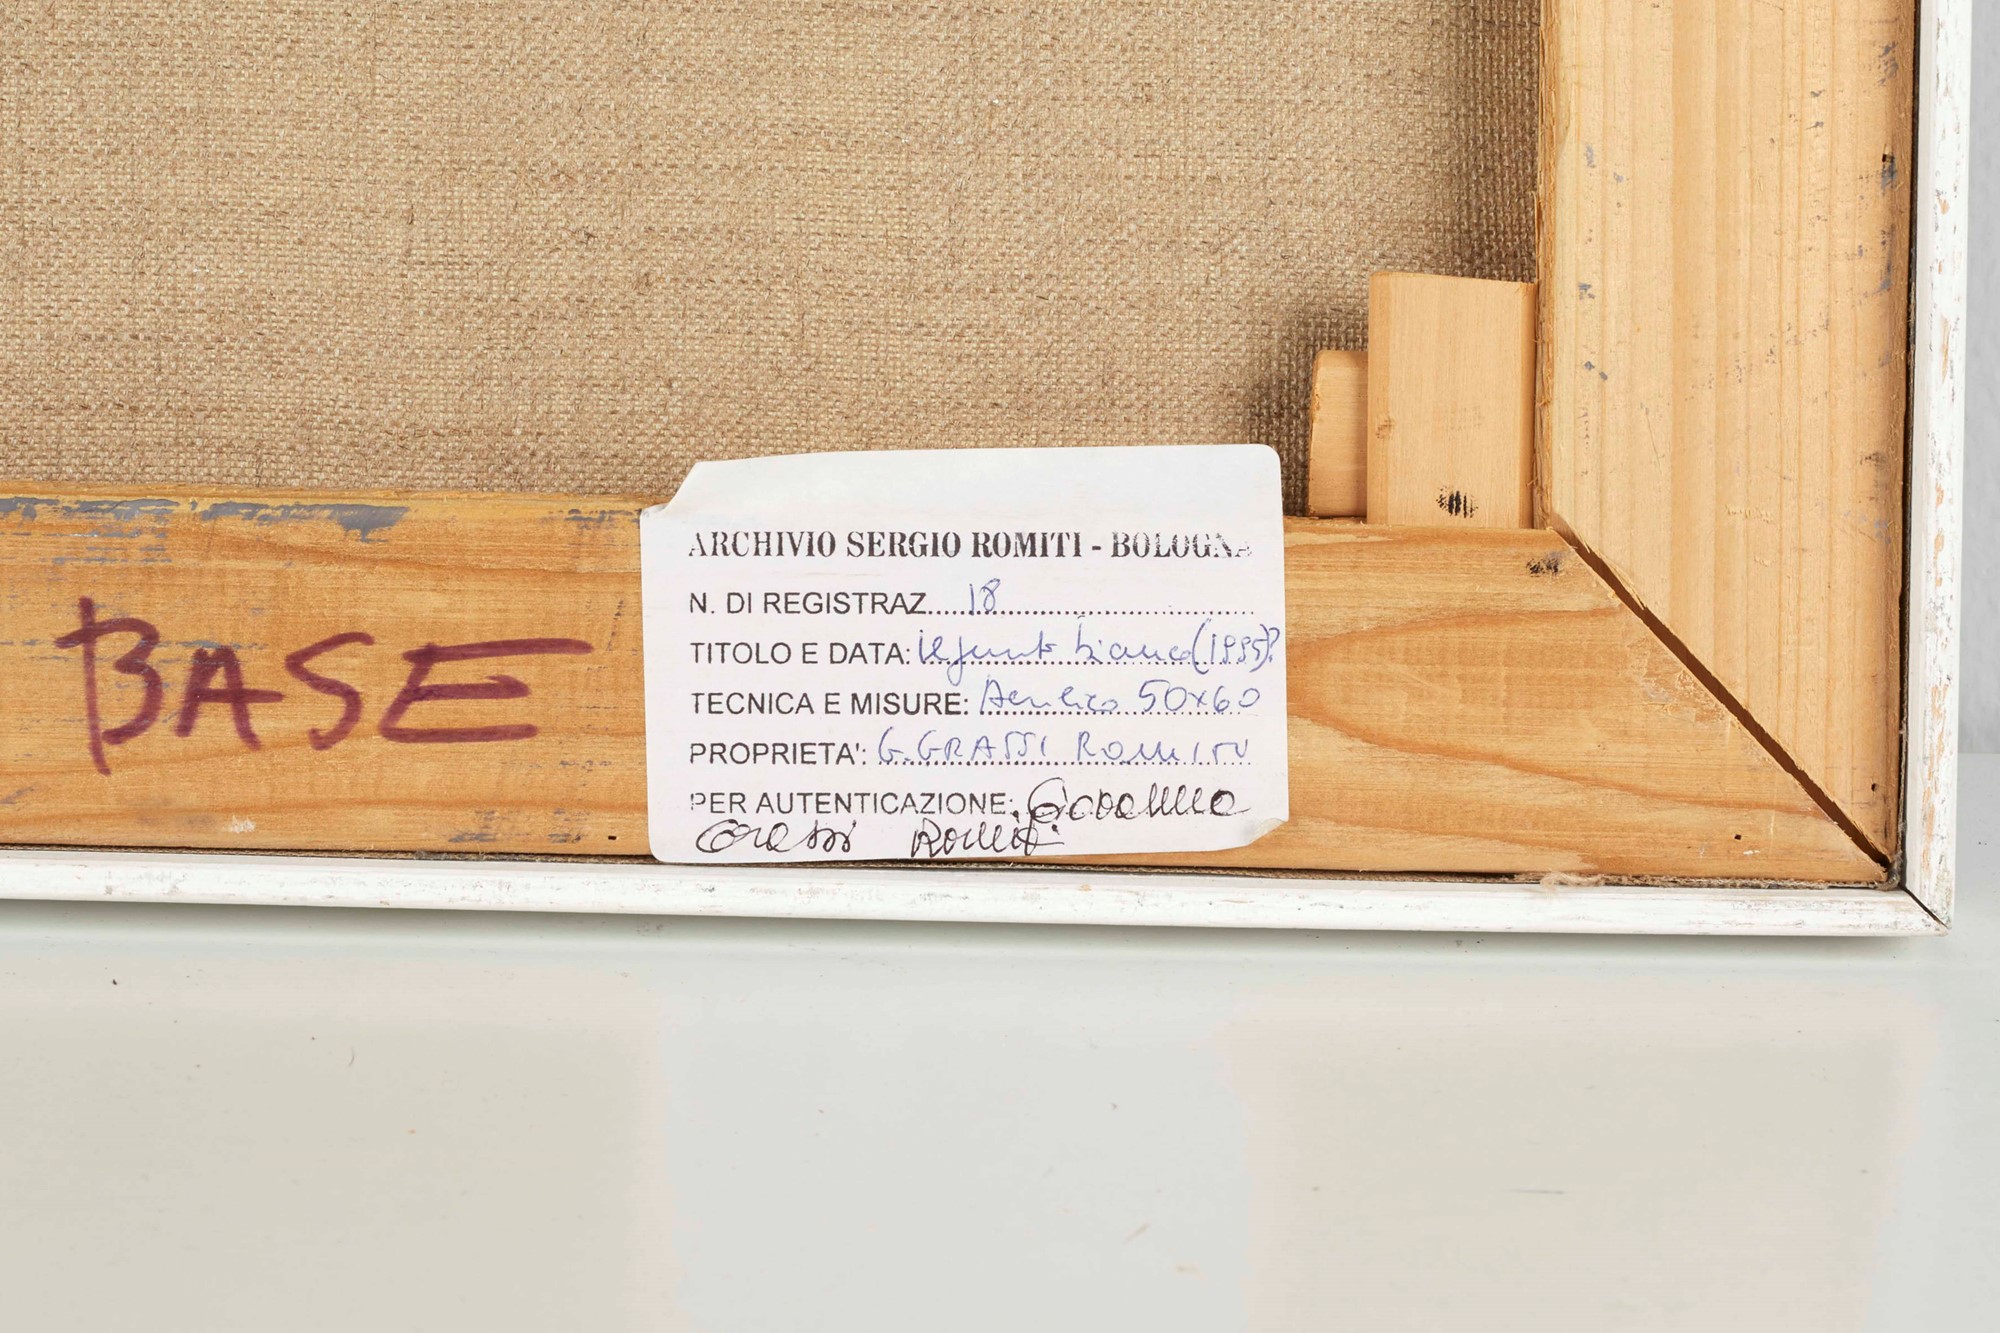 BASE
ARCHIVIO SERGIO ROMITI - BOLOGNA
N. DI REGISTRAZ. 18
TITOLO E DATA: Il punto bianco (1995)?
TECNICA E MISURE: Acrilico 50x60
PROPRIETA': G. GRASSI ROMITI
PER AUTENTICAZIONE: Giovanna
Grassi Romiti